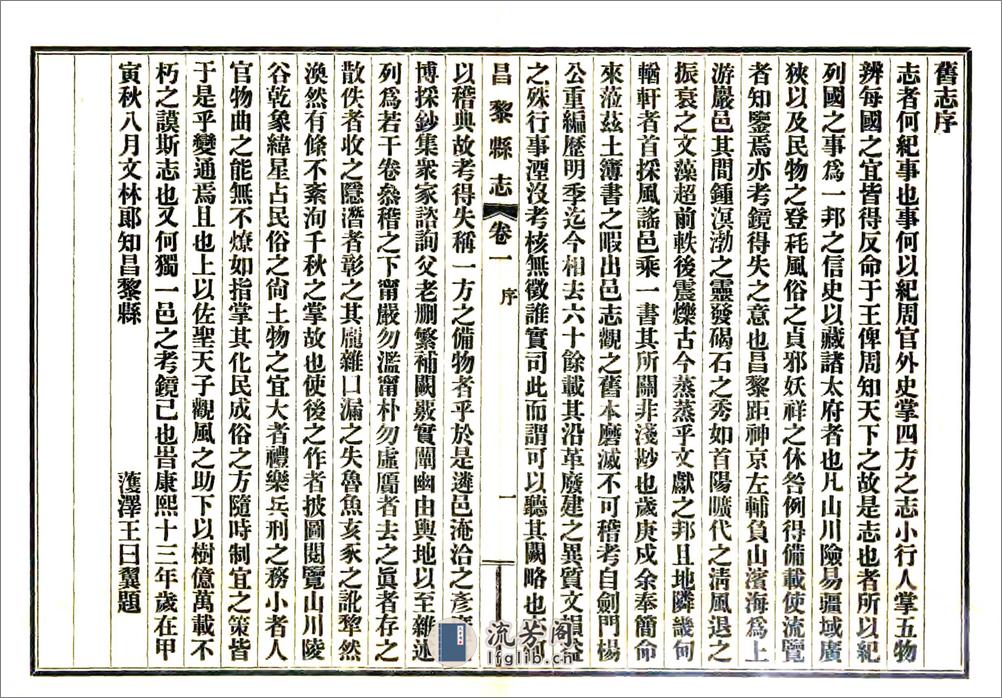 舊志序
志者何紀事也事何以紀周官外史掌四方之志小行人掌五物
辨每國之宜皆得反命于王俾周知天下之故是志也者所以紀
列國之事爲一邦之信史以藏諸太府者也凡山川險易疆域廣
狹以及民物之登耗風俗之貞邪妖祥之休咎例得備載使流覽
者知鑒焉亦考鏡得失之意也昌黎距神京左輔負山濱海爲上
游嚴邑其間鍾溟渤之靈發碣石之秀如首陽曠代之淸風退之
振衰之文藻超前軼後震爍古今蒸蒸乎文獻之邦且地隣畿甸
輶軒者首採風謠邑乘一書其所關非淺尠也歲庚戌余奉簡命
來蒞茲土簿書之暇出邑志觀之舊本磨滅不可稽考自劍門楊
公重編歷明季迄今相去六十餘載其沿革廢建之異質文
之殊行事湮沒考核無徵誰實司此而謂可以聽其闕略也
昌黎縣志 卷一 序 一
以稽典故考得失稱一方之備物者乎於是遴邑淹洽之彥
博採鈔集衆家諮詢父老刪繁補闕覈實闡幽由輿地以至雜述
列爲若干卷叅稽之下甯嚴勿濫甯朴勿虛贋者去之眞者存之
散佚者收之隱潛者彰之其龐雜口漏之失魯魚亥豕之訛犂然
渙然有條不紊洵千秋之掌故也使後之作者披圖閱覽山川陵
谷乾象緯星占民俗之尙土物之宜大者禮樂兵刑之務小者人
官物曲之能無不燎如指掌其化民成俗之方隨時制宜之策皆
于是乎變通焉且也上以佐聖天子觀風之助下以樹億萬載不
朽之謨斯志也又何獨一邑之考鏡已也旹康熙十三年歲在甲
寅秋八月文林郎知昌黎縣 濩澤王曰翼題
流芳阁
lfglib.cn